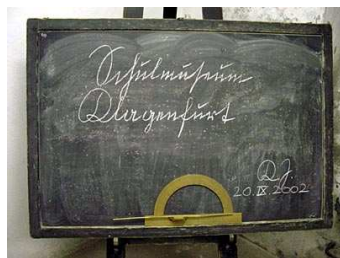 Schulmuseum
Klagenfurt
K J.
20.IX.2002